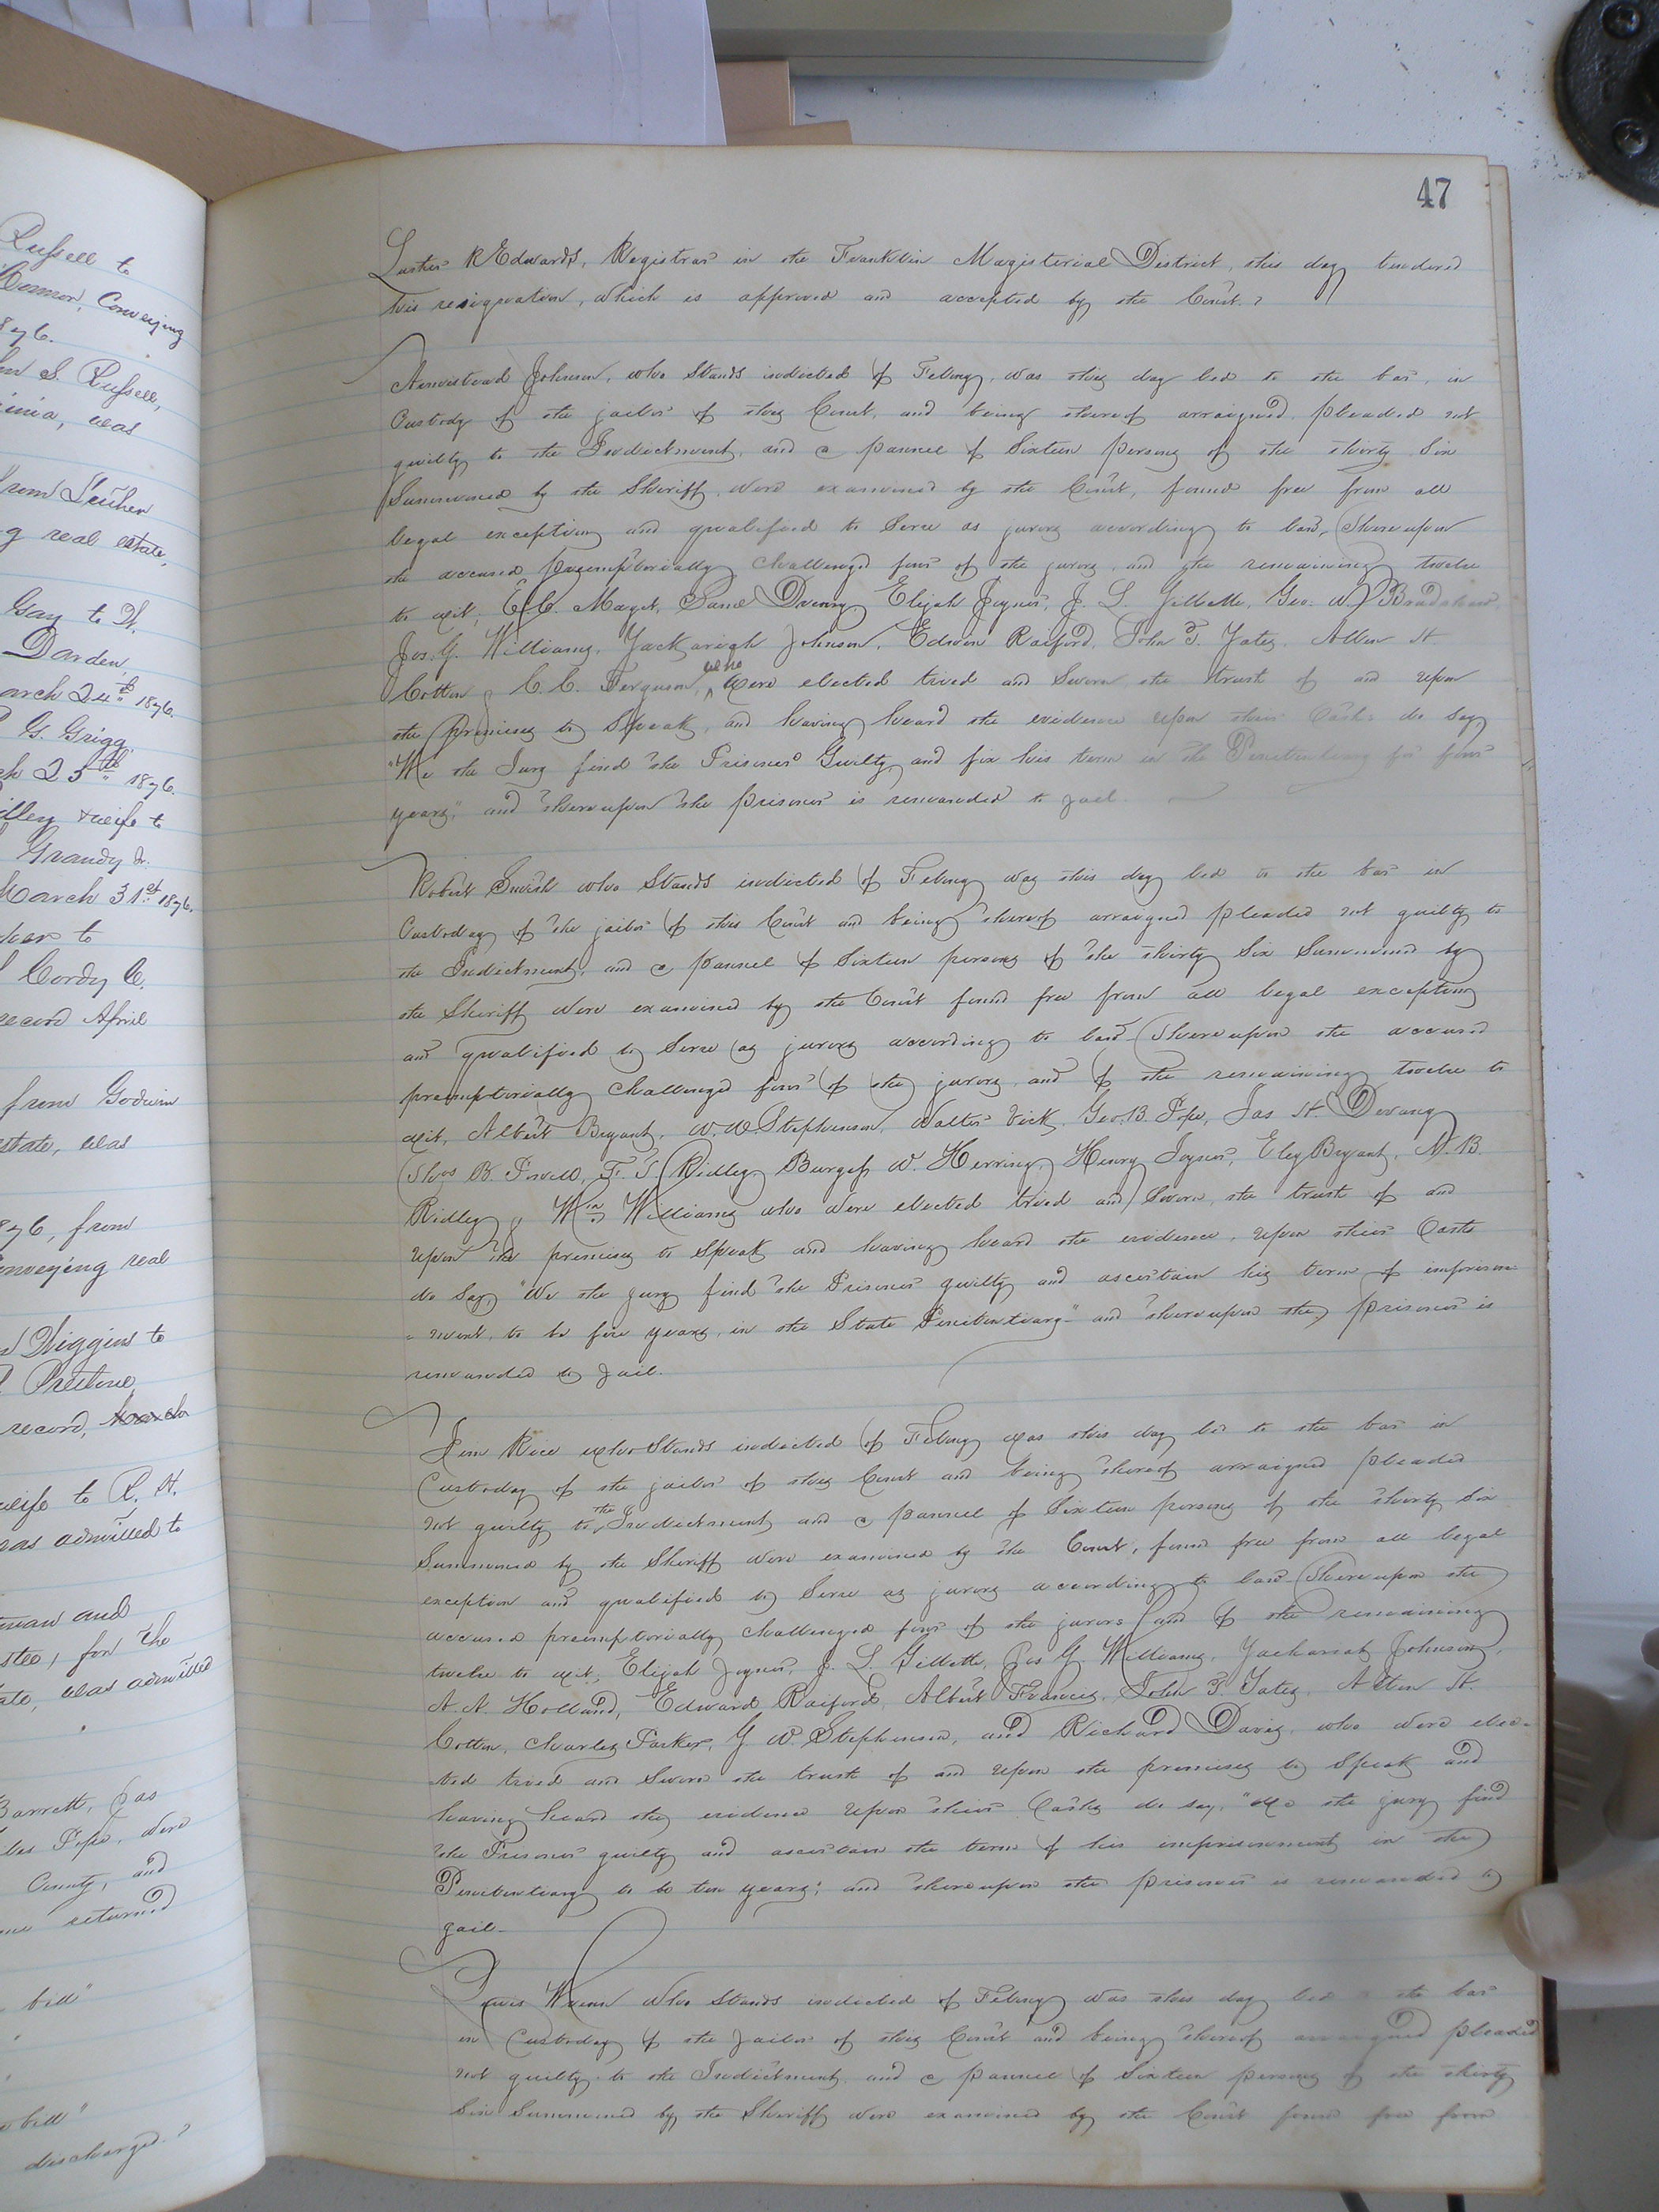 Russell to
Conveying
1876.
S. Russell,
was
from
real estate,
Gay to
Darden
March 24th 1876.
G. Grigg,
25th 1876.
& wife to
Grandy Jr.
March 31st 1876.
to
Cordy C.
record April
from Godwin
estate, was
from
Conveying real
Wiggins to
record, March
wife to R. H.
was admitted to
and
for the
was admitted
Barrett, Jas
Pope, were
County, and
returned
bill"
bill"
discharged.
47
R Edwards, Registrar in the Franklin Magisterial District, this day tendered
his resignation, which is approved and accepted by the Court.
Armistead Johnson, who Stands indicted of Felony, was this day led to the bar, in
Custody of the jailor of this Court, and being thereof arraigned, pleaded not
guilty to the Indictment, and a pannel of Sixteen persons of the thirty Six
Summoned by the Sheriff, were examined by the Court, found free from all
legal exceptions and qualified to Serve as jurors according to law, Thereupon
the accused premptorially challenged four of the jurors, and the remaining twelve
to wit, E.C. Maget, Saml Drewry, Elijah Joyner, J. L. Gillette, Geo. W. Bradshaw,
Jos. G. Williams, Zackariah Johnson, Edwin Raiford, John T. Yates, Allen H
Cotton & C. C. Ferguson, who were elected tried and Sworn the trust of and upon
the premises to Speak, and having heard the evidence upon their Oaths do say,
"We the Jury find the Prisoner Guilty, and fix his term in the Penitentiary for four
years," and thereupon the prisoner is remanded to jail.
Robert Smith who Stands indicted of Felony was this day led to the bar in
Custody of the jailor of this Court and being thereof arraigned pleaded not guilty to
the Indictment, and a pannel of Sixteen persons of the thirty Six Summoned by
the Sheriff were examined by the Court found free from all legal exceptions
and qualified to Serve as jurors according to law Thereupon the accused
premptorially challenged four of the jurors and of the remaining twelve to
wit, Albert Bryant, W. W. Stephenson, Walter Vick, Geo. B. Pope, Jas H. Devany
Thos B. Powell, F. T. Ridley, Burgess W. Herring, Henry Joyner, Eley Bryant, N. B.
Ridley & Wm Williams who were elected tried and Sworn, the trust of and
upon the premises to Speak and having heard the evidence, upon their Oaths
do Say, "We the jury find the Prisoner guilty and ascertain his term of imprison-
-ment, to be five years, in the State Penitentiary" and thereupon the prisoner is
remanded to jail.
Jim Rice who Stands indicted of Felony was this day led to the bar in
Custody of the jailor of this Court and being thereof arraigned pleaded
not guilty to the Indictment, and a pannel of Sixteen persons of the thirty Six
Summoned by the Sheriff were examined by the Court, found free from all legal
exception and qualified to Serve as jurors according to law Thereupon the
accused premptorially challenged four of the jurors and of the remaining
twelve to wit, Elijah Joyner, J. L. Gillette, Jos G. Williams, Zachariah Johnson,
A. N. Holland, Edward Raiford, Albert Francis, John T. Yates, Allen H.
Cotton, Charles Parker, G. W. Stephenson, and Richard Davis, who were elec-
-ted tried and Sworn the trust of and upon the premises to Speak and
having heard the evidence upon their Oaths do say, "We the jury find
the Prisoner guilty and ascertain the term of his imprisonment in the
Penitentiary to be ten years", and thereupon the prisoner is remanded to
jail.
Who Stands indicted of Felony was this day led to the bar
in Custody of the Jailor of this Court and being thereof arraigned pleaded
not guilty to the Indictment, and a pannel of Sixteen persons of the thirty
Six Summoned by the Sheriff were examined by the Court found free from